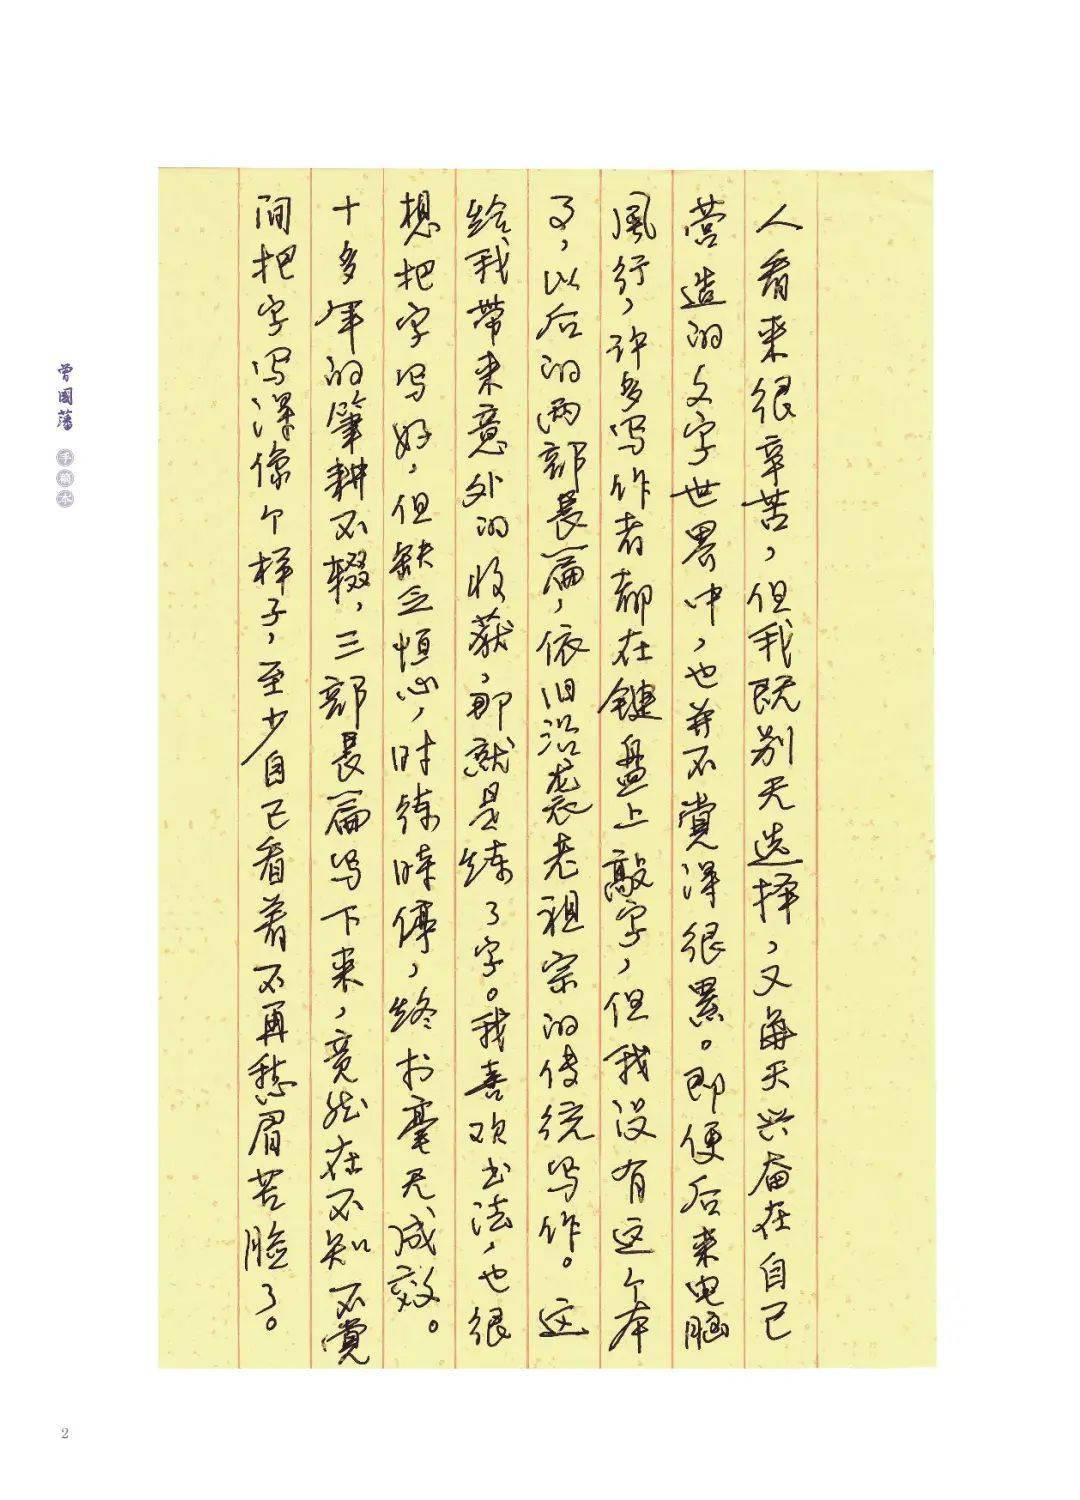 人看来很辛苦，但我既别无选择，又每天兴奋在自己
营造的文字世界中，也并不觉得很累。即便后来电脑
風行，许多写作者都在键盘上敲字，但我没有这个本
了，以后的两部長篇，依旧沿袭老祖宗的传统写作。这
给我带来意外的收获，那就是练了字。我喜欢书法，也很
想把字写好，但缺乏恒心，时练时停，终于毫无成效。
十多年的筆耕不辍，三部長篇写下来，竟然在不知不觉
间把字写得像个样子，至少自己看着不再愁眉苦脸了。
曾國藩 手稿本
2